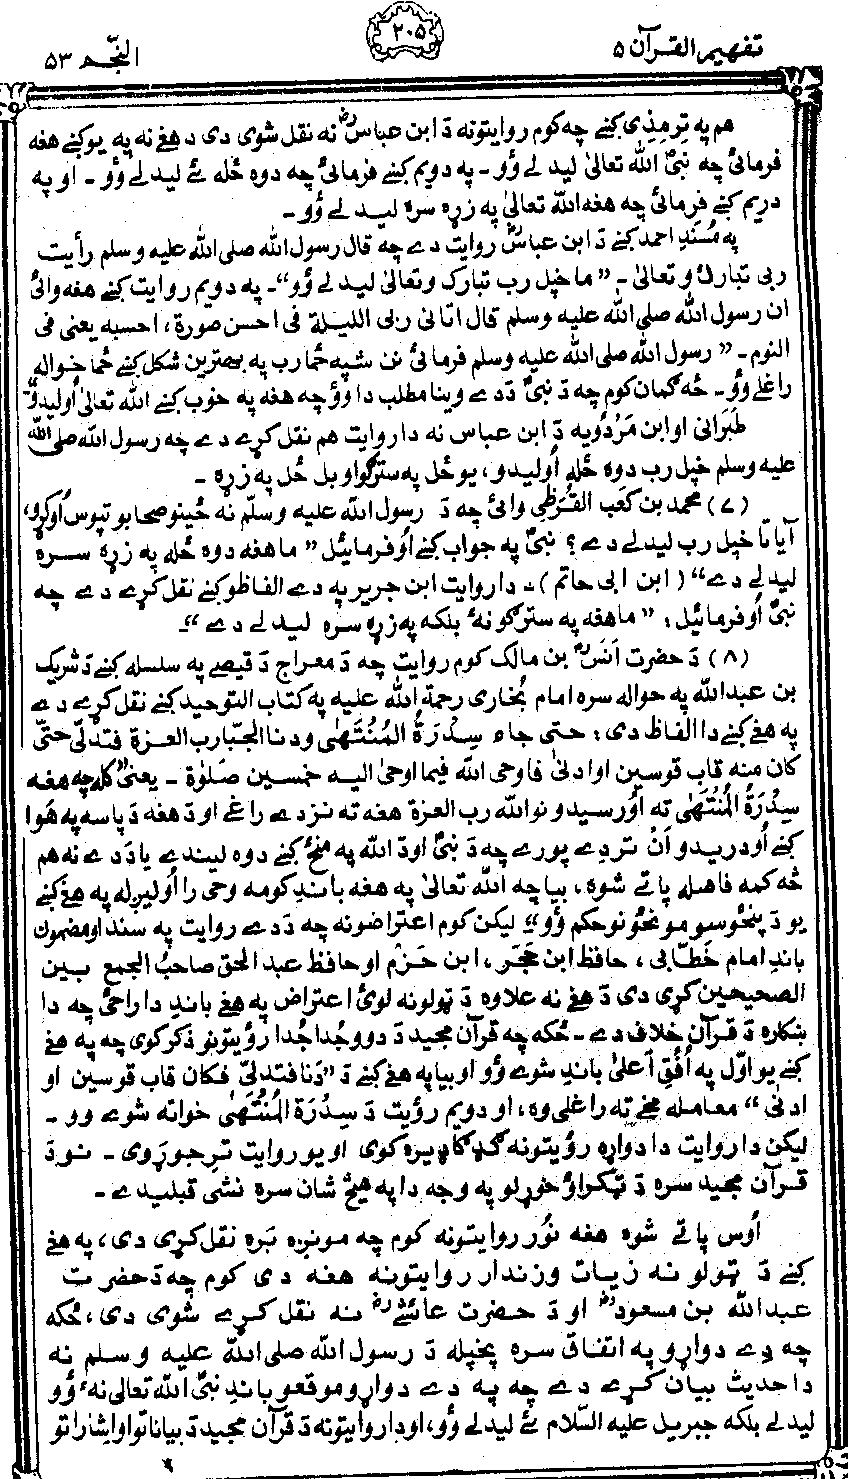 تفهیم القرآن ۵
۲۰۵
النّجم ۵۳
هم په ترمذی کښے چه کوم روایتونه دَ ابن عباسؓ نه نقل شوی دی دهغے نه په یو کښے هغه
فرمائی چه نبیؐ الله تعالیٰ لید لے وُو۔ په دویم کښے فرمائی چه دوه ځله ئے لید لے وُو۔ او په
دریم کښے فرمائی چه هغه الله تعالیٰ په زړه سره لید لے وُو۔
په مُسندِ احمد کښے دَ ابن عباسؓ روایت دے چه قال رسول الله صلی الله علیه وسلم رأیت
ربی تبارک و تعالیٰ۔ ”ما خپل رب تبارک وتعالیٰ لید لے وُو“۔ په دویم روایت کښے هغه وائی
ان رسول الله صلی الله علیه وسلم قال اتانی ربی اللیلة فی احسن صورة، احسبه یعنی فی
النوم۔ ”رسول الله صلی الله علیه وسلم فرمائی نن شپه ځما رب په بهترین شکل کښے ځما خواله
راغلے وُو۔ ځه ګمان کوم چه دَ نبیؐ دَدے وینا مطلب دا وُو چه هغه په خوب کښے الله تعالیٰ اُولیدو“
طبَرانی او ابن مَردُویه دَ ابن عباس نه دا روایت هم نقل کړے دے چه رسول الله صلی الله
علیه وسلم خپل رب دوه ځله اُولیدو، یو ځل په سترګو او بل ځل په زړه۔
(۷) محمد بن کعب القُرَظی وائی چه دَ رسول الله علیه وسلّم نه ځینو صحابو تپوس اُوکړو،
آیا تا خپل رب لید لے دے؟ نبیؐ په جواب کښے اُوفرمائیل ”ما هغه دوه ځله په زړه سره
لید لے دے“ (ابن ابی حاتم)۔ دا روایت ابن جریر په دے الفاظو کښے نقل کړے دے چه
نبیؐ اُوفرمائیل: ”ما هغه په سترګو نه بلکه په زړه سره لید لے دے“۔
(۸) دَ حضرت اَنسؓ بن مالک کوم روایت چه دَ معراج دَ قیصے په سلسله کښے دَ شریک
بن عبدالله په حواله سره امام بُخاری رحمة الله علیه په کتاب التوحید کښے نقل کړے دے
په هغے کښے دا الفاظ دی: حتی جاء سِدْرَةُ المُنْتَهٰی ودنا الجبّار رب العزة فتدلّیٰ حتیّٰ
کان منه قاب قوسین او ادنیٰ فاوحی الله فیما اوحیٰ الیه خمسین صلوٰة۔ یعنی ”کله چه هغه
سِدْرَةُ المُنْتَهٰی ته اُورسیدو نو الله رب العزة هغه ته نزدے راغے او دَهغه دَ پاسه په هوا
کښے اُودریدو اَنْ تردے پورے چه دَ نبیؐ او دَ الله په منځ کښے دوه لیندے یا دَدے نه هم
څه کمه فاصله پاتے شوه، بیا چه الله تعالیٰ په هغه باندِ کومه وحی را اُولیږله په هغے کښے
یو دَ پنځوسو مونځونو حکم وُو“ لیکن کوم اعتراضونه چه دَدے روایت په سند او مضمون
باندِ امام خطّابی، حافظ ابن حَجَر، ابن حَزْم او حافظ عبدالحق صاحبُ الجمع بین
الصحیحین کړی دی دَ هغے نه علاوه دَ ټولو نه لوئ اعتراض په هغے باندِ دا راځی چه دا
ښکاره دَ قرآن خلاف دے۔ ځکه چه قرآن مجید دَ دوو جُدا جُدا رؤیتونو ذکر کوی چه په هغے
کښے یو اوّل په اُفُقِ اَعلیٰ باندِ شوے وُو او بیا په هغے کښے دَ ”دَنا فتدلیّٰ فکان قاب قوسین او
ادنیٰ“ معامله مخے ته راغلی وه، او دویم رؤیت دَ سِدْرَةُ المُنْتَهٰی خواته شوے وو۔
لیکن دا روایت دا دواړه رؤیتونه ګډ کا ډیره کوی او یو روایت ترِ جوړوی۔ نو دَ
قرآن مجید سره دَ ټکراؤ خوړلو په وجه دا په هیڅ شان سره نشی قبلیدے۔
اُوس پاتے شوه هغه نور روایتونه کوم چه مونږه بَره نقل کړی دی، په هغے
کښے دَ ټولو نه زیات وزندار روایتونه هغه دی کوم چه دَ حضرت
عبدالله بن مسعودؓ او دَ حضرت عائشےؓ نه نقل کړے شوی دی، ځکه
چه دِے دواړو په اتفاق سره پخپله دَ رسول الله صلی الله علیه وسلم نه
دا حدیث بیان کړے دے چه په دے دواړو موقعو باندِ نبیؐ الله تعالیٰ نه وُو
لیدلے بلکه جبریل علیه السّلام ئے لید لے وُو، او دا روایتونه دَ قرآن مجید دَ بیاناتو او اشاراتو